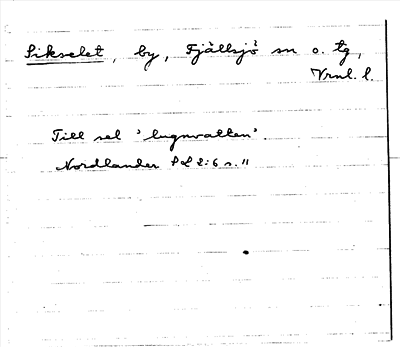 Sikselet, by, Fjällsjö sn o. tg,
Vrnl. l.
Till sel 'lugnvatten'.
Nordlander SoL 2:6 s. 11